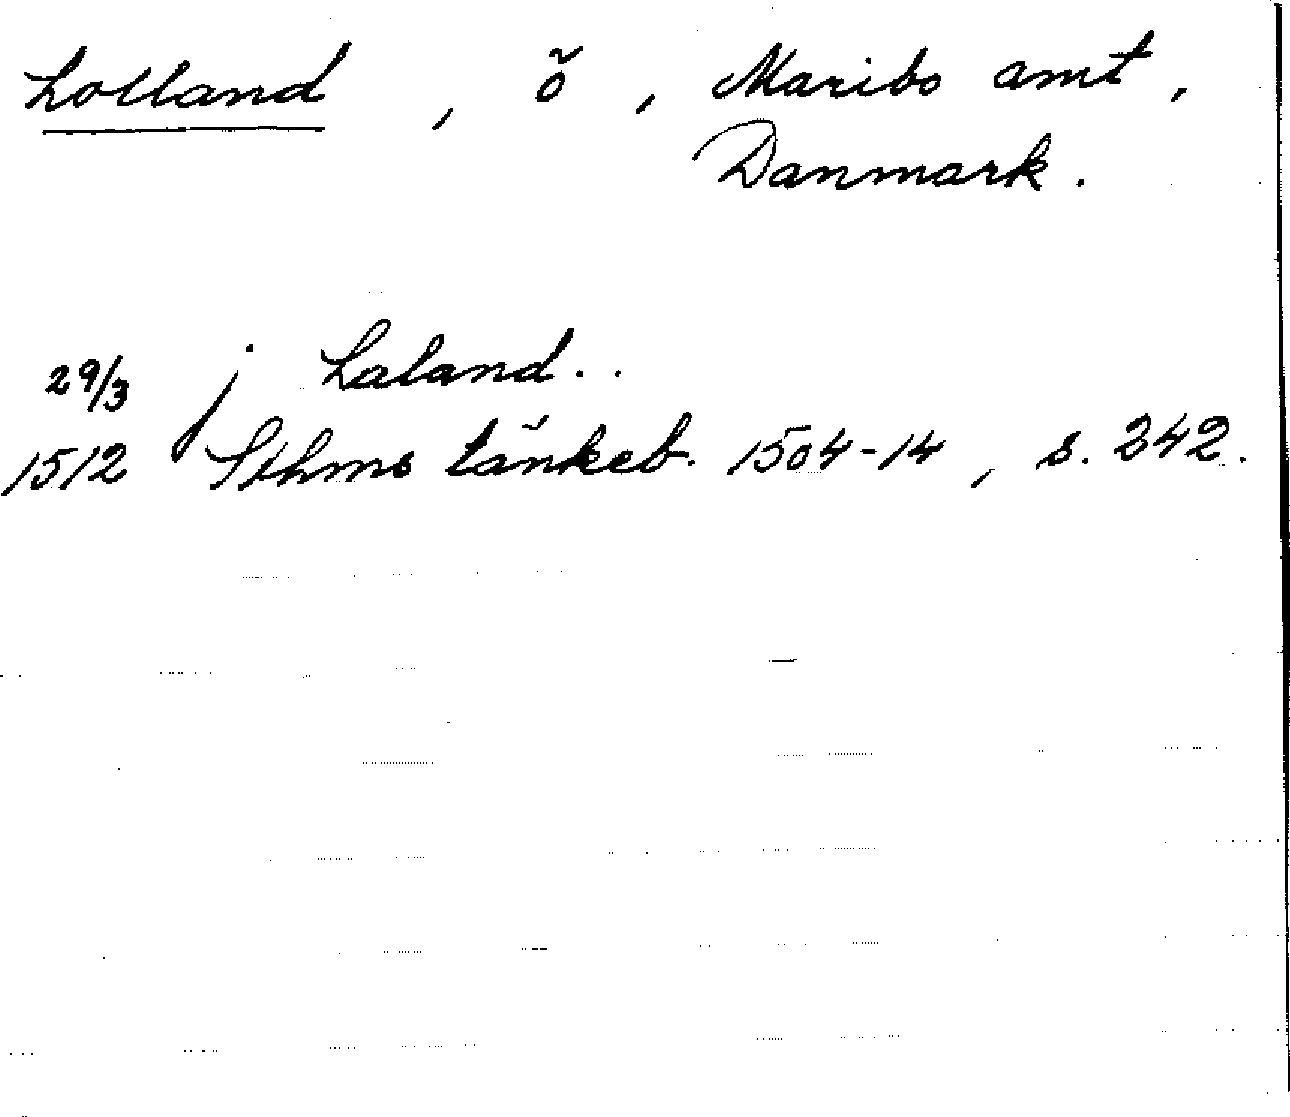 Lolland, ö, Maribo amt,
Danmark.
29/3 j Laland..
1512 Sthms tänkeb. 1504-14, s. 242.